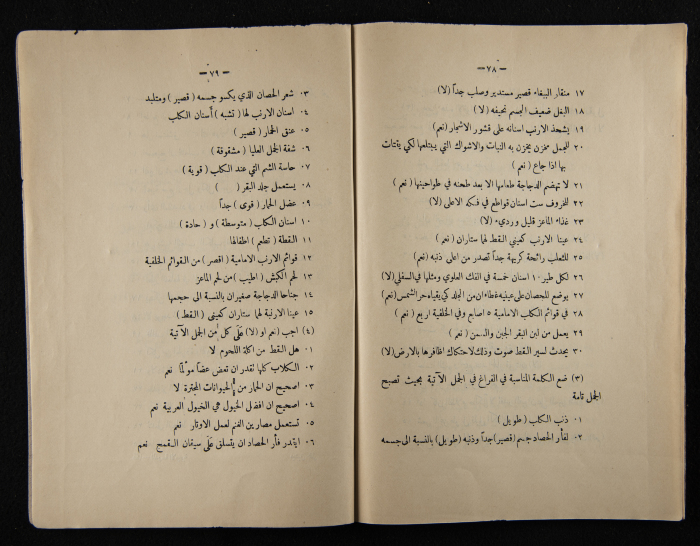 — ٧٨ —
١٧ منقار الببغاء قصير مستدير وصلب جداً (لا)
١٨ البغل ضعيف الجسم نحيفه (لا)
١٩ يشحذ الارنب اسنانه على قشور الاشجار (نعم)
٢٠ للجمل مخزن يخزن به النبات والاشواك التي يبتلعها لكي يقتات
بها اذا جاع ( نعم )
٢١ لا تهضم الدجاجة طعامها الا بعد طحنه في طواحينها ( نعم )
٢٢ للخروف ست اسنان قواطع في فكه الاعلى (لا)
٢٣ غذاء الماعز قليل ورديء (لا)
٢٤ عينا الارنب كعيني القط لها ستاران ( نعم )
٢٥ للثعلب رائحة كريهة جداً تصدر من اعلى ذنبه (نعم)
٢٦ لكل طير ١٠ اسنان خمسة في الفك العلوي ومثلها في السفلي (لا)
٢٧ يوضع للحصان على عينيه غطاءان من الجلد كي يقياه حر الشمس (نعم)
٢٨ في قوائم الكلب الامامية ٥ اصابع وفي الخلفية اربع ( نعم )
٢٩ يعمل من لبن البقر الجبن والسمن ( نعم )
٣٠ يحدث لسير القط صوت وذلك لاحتكاك اظافرها بالارض (لا)
(٣) ضع الكلمة المناسبة في الفراغ في الجمل الآتية بحيث تصبح
الجمل تامة
٠١ ذنب الكلب ( طويل )
٠٢ لفأر الحصاد جسم (قصير) جداً وذنبه (طويل) بالنسبة الى جسمه
— ٧٩ —
٠٣ شعر الحصان الذي يكسو جسمه ( قصير ) ومتلبد
٠٤ اسنان الارنب لها ( تشبه ) أسنان الكلب
٠٥ عنق الحمار ( قصير )
٠٦ شفة الجمل العليا ( مشقوقة )
٠٧ حاسة الشم التي عند الكلب ( قوية )
٠٨ يستعمل جلد البقر ( )
٠٩ عضل الحمار ( قوى ) جداً
١٠ اسنان الكلب ( متوسطة ) و ( حادة )
١١ القطة ( تطعم ) اطفالها
١٢ قوائم الارنب الامامية ( اقصر ) من القوائم الخلفية
١٣ لحم الكبش ( اطيب ) من لحم الماعز
١٤ جناحا الدجاجة صغيران بالنسبة الى حجمها
١٥ عينا الارنبة لها ستاران كعيني ( القط )
(٤) اجب (نعم او (لا) على كل من الجمل الآتية
٠١ هل القط من اكلة اللحوم لا
٠٢ الكلاب كلها تقدر ان تعض عضاً مؤلماً نعم
٠٣ اصحيح ان الحمار من الحيوانات المجترة لا
٠٤ اصحيح ان افضل الخيول هي الخيول العربية نعم
٠٥ تستعمل مصارين الغنم لعمل الاوتار نعم
٠٦ ايقدر فأر الحصاد ان يتسلق على سيقان القمح نعم